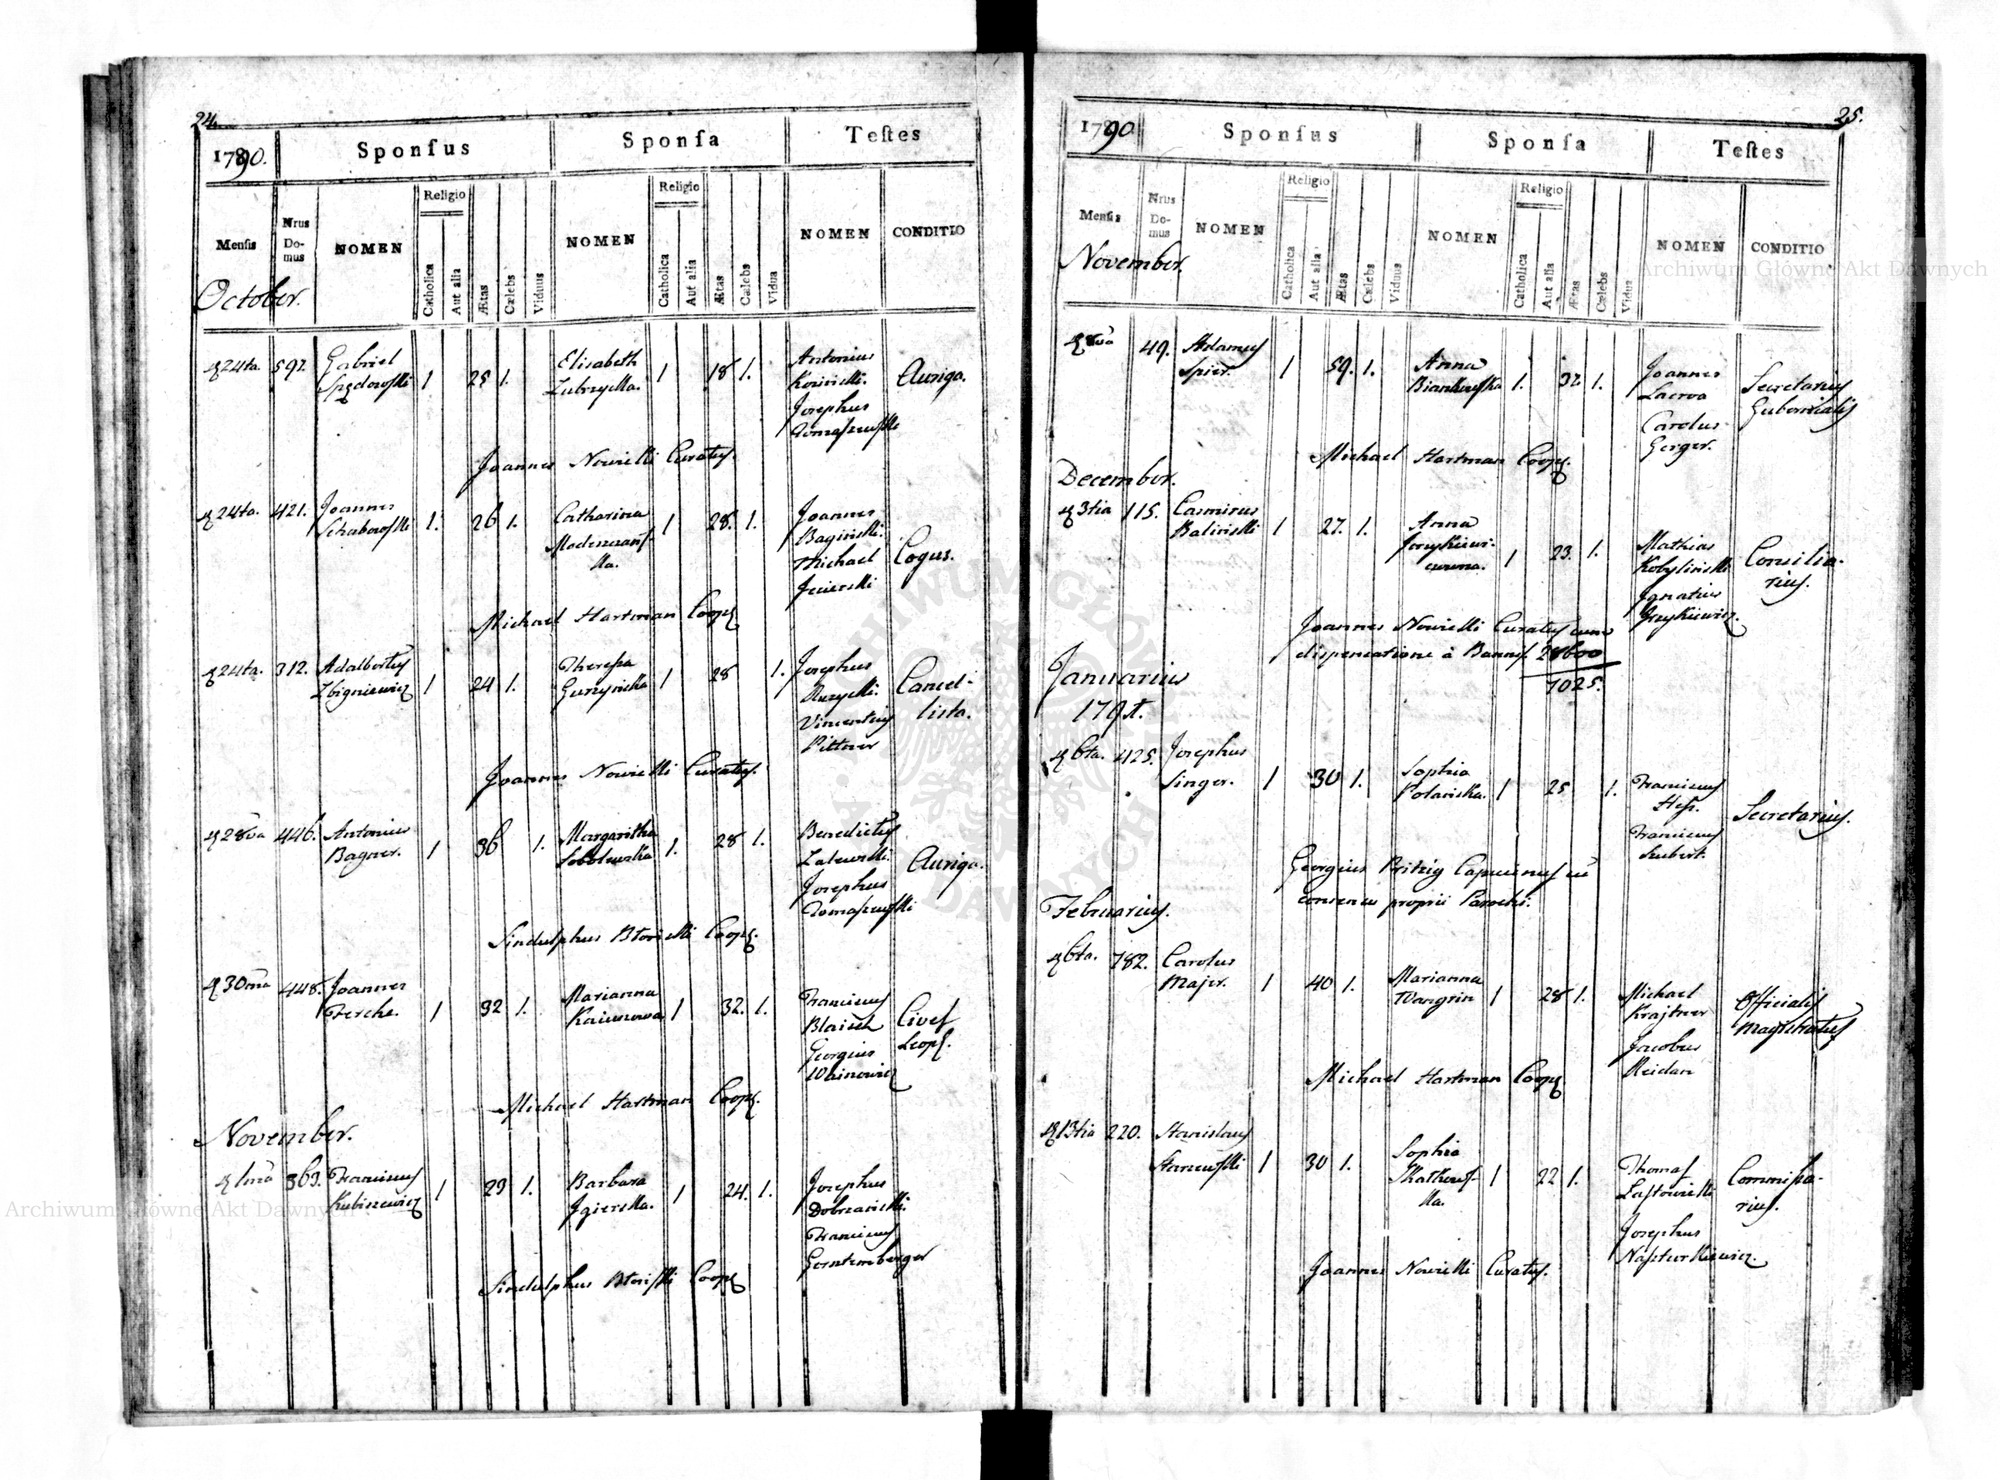 24.
1790.
Sponsus
Sponsa
Testes
Mensis
Nrus Domus
NOMEN
Religio
Catholica
Aut alia
Ætas
Cœlebs
Viduus
NOMEN
Religio
Catholica
Aut alia
Ætas
Cœlebs
Vidua
NOMEN
CONDITIO
October.
24ta. 597. Gabriel 1 25 1. Elisabeth 1 18 1. Antonius Auriga.
Josephus
Joannes Nowicki Curatus.
24ta. 421. Joannes 1. 26 1. Catharina 1 28. 1. Joannes Cogus.
Baginski.
Michael
Jezierski
Michael Hartman Coop
24ta. 312. Adalbertus 1 24 1. Theressa 1 28 1. Josephus Cancel-
Zbigniewicz Gurzynska lista.
Vincentius
Pittner
Joannes Nowicki Curatus.
28va 446. Antonius 1 36 1. Margaritha 1. 28 1. Benedictus Auriga.
Bagner. Sobolewska Zalewski.
Josephus
Tomaszewski
Sindulphus Coop.
30ma 448. Joannes 1 32 1. Marianna 1 32. 1. Franciscus Civis
Ferche. Leopl.
Georgius
Michael Hartman Coop.
November.
1ma 369. Franciscus 1 29 1. Barbara 1 24. 1. Josephus
Kubiszewicz Jgierska. Dobrzanski.
Franciscus
Sindulphus Coop
25.
1790.
Sponsus
Sponsa
Testes
Mensis
Nrus Domus
NOMEN
Religio
Catholica
Aut alia
Ætas
Cœlebs
Viduus
NOMEN
Religio
Catholica
Aut alia
Ætas
Cœlebs
Vidua
NOMEN
CONDITIO
November.
8va 49. Adamus 1 59. 1. Anna 1. 32 1. Joannes Secretarius
Spier. Biankowska Lacroa Gubernialis
Carolus
Gerger.
Michael Hartman Coop.
December.
3tia 115. Casimirus 1 27. 1. Anna 1 23. 1. Mathias Consilia-
Balinski Kobylinski rius.
Ignatius
Joannes Nowicki Curatus cum
dispensatione à Bannis
1025.
Januarius
1791.
6ta. 425. Josephus 1 30 1. Sophia 1 25 1. Franciscus Secretarius.
Singer. Polanska.
Hess.
Franciscus
Georgius Capucinus cū
consensu proprii Parochi.
Februarius.
6ta. 782. Carolus 1 40 1. Marianna 1 28 1. Michael Officialis
Majer. Wangrin Krajtner Magistratus
Jacobus
Reidan
Michael Hartman Coop
13tia 220. Stanislaus 1 30 1. Sophia 1 22 1. Thomas Commissa-
rius.
Josephus
Napturkiewicz.
Joannes Nowicki Curatus.
Archiwum Główne Akt Dawnych
Archiwum Główne Akt Dawnych
ARCHIWUM GŁÓWNE AKT DAWNYCH